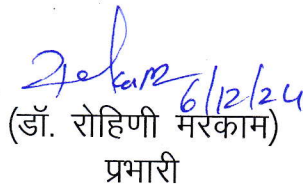 6/12/24
(डॉ. रोहिणी मरकाम)
प्रभारी